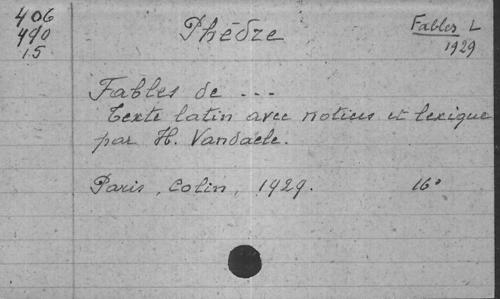 406
490
15
Phèdre
Fables L
1929
Fables de ---
Texte latin avec notices et lexique
par H. Vandaele.
Paris, Colin, 1929. 16°